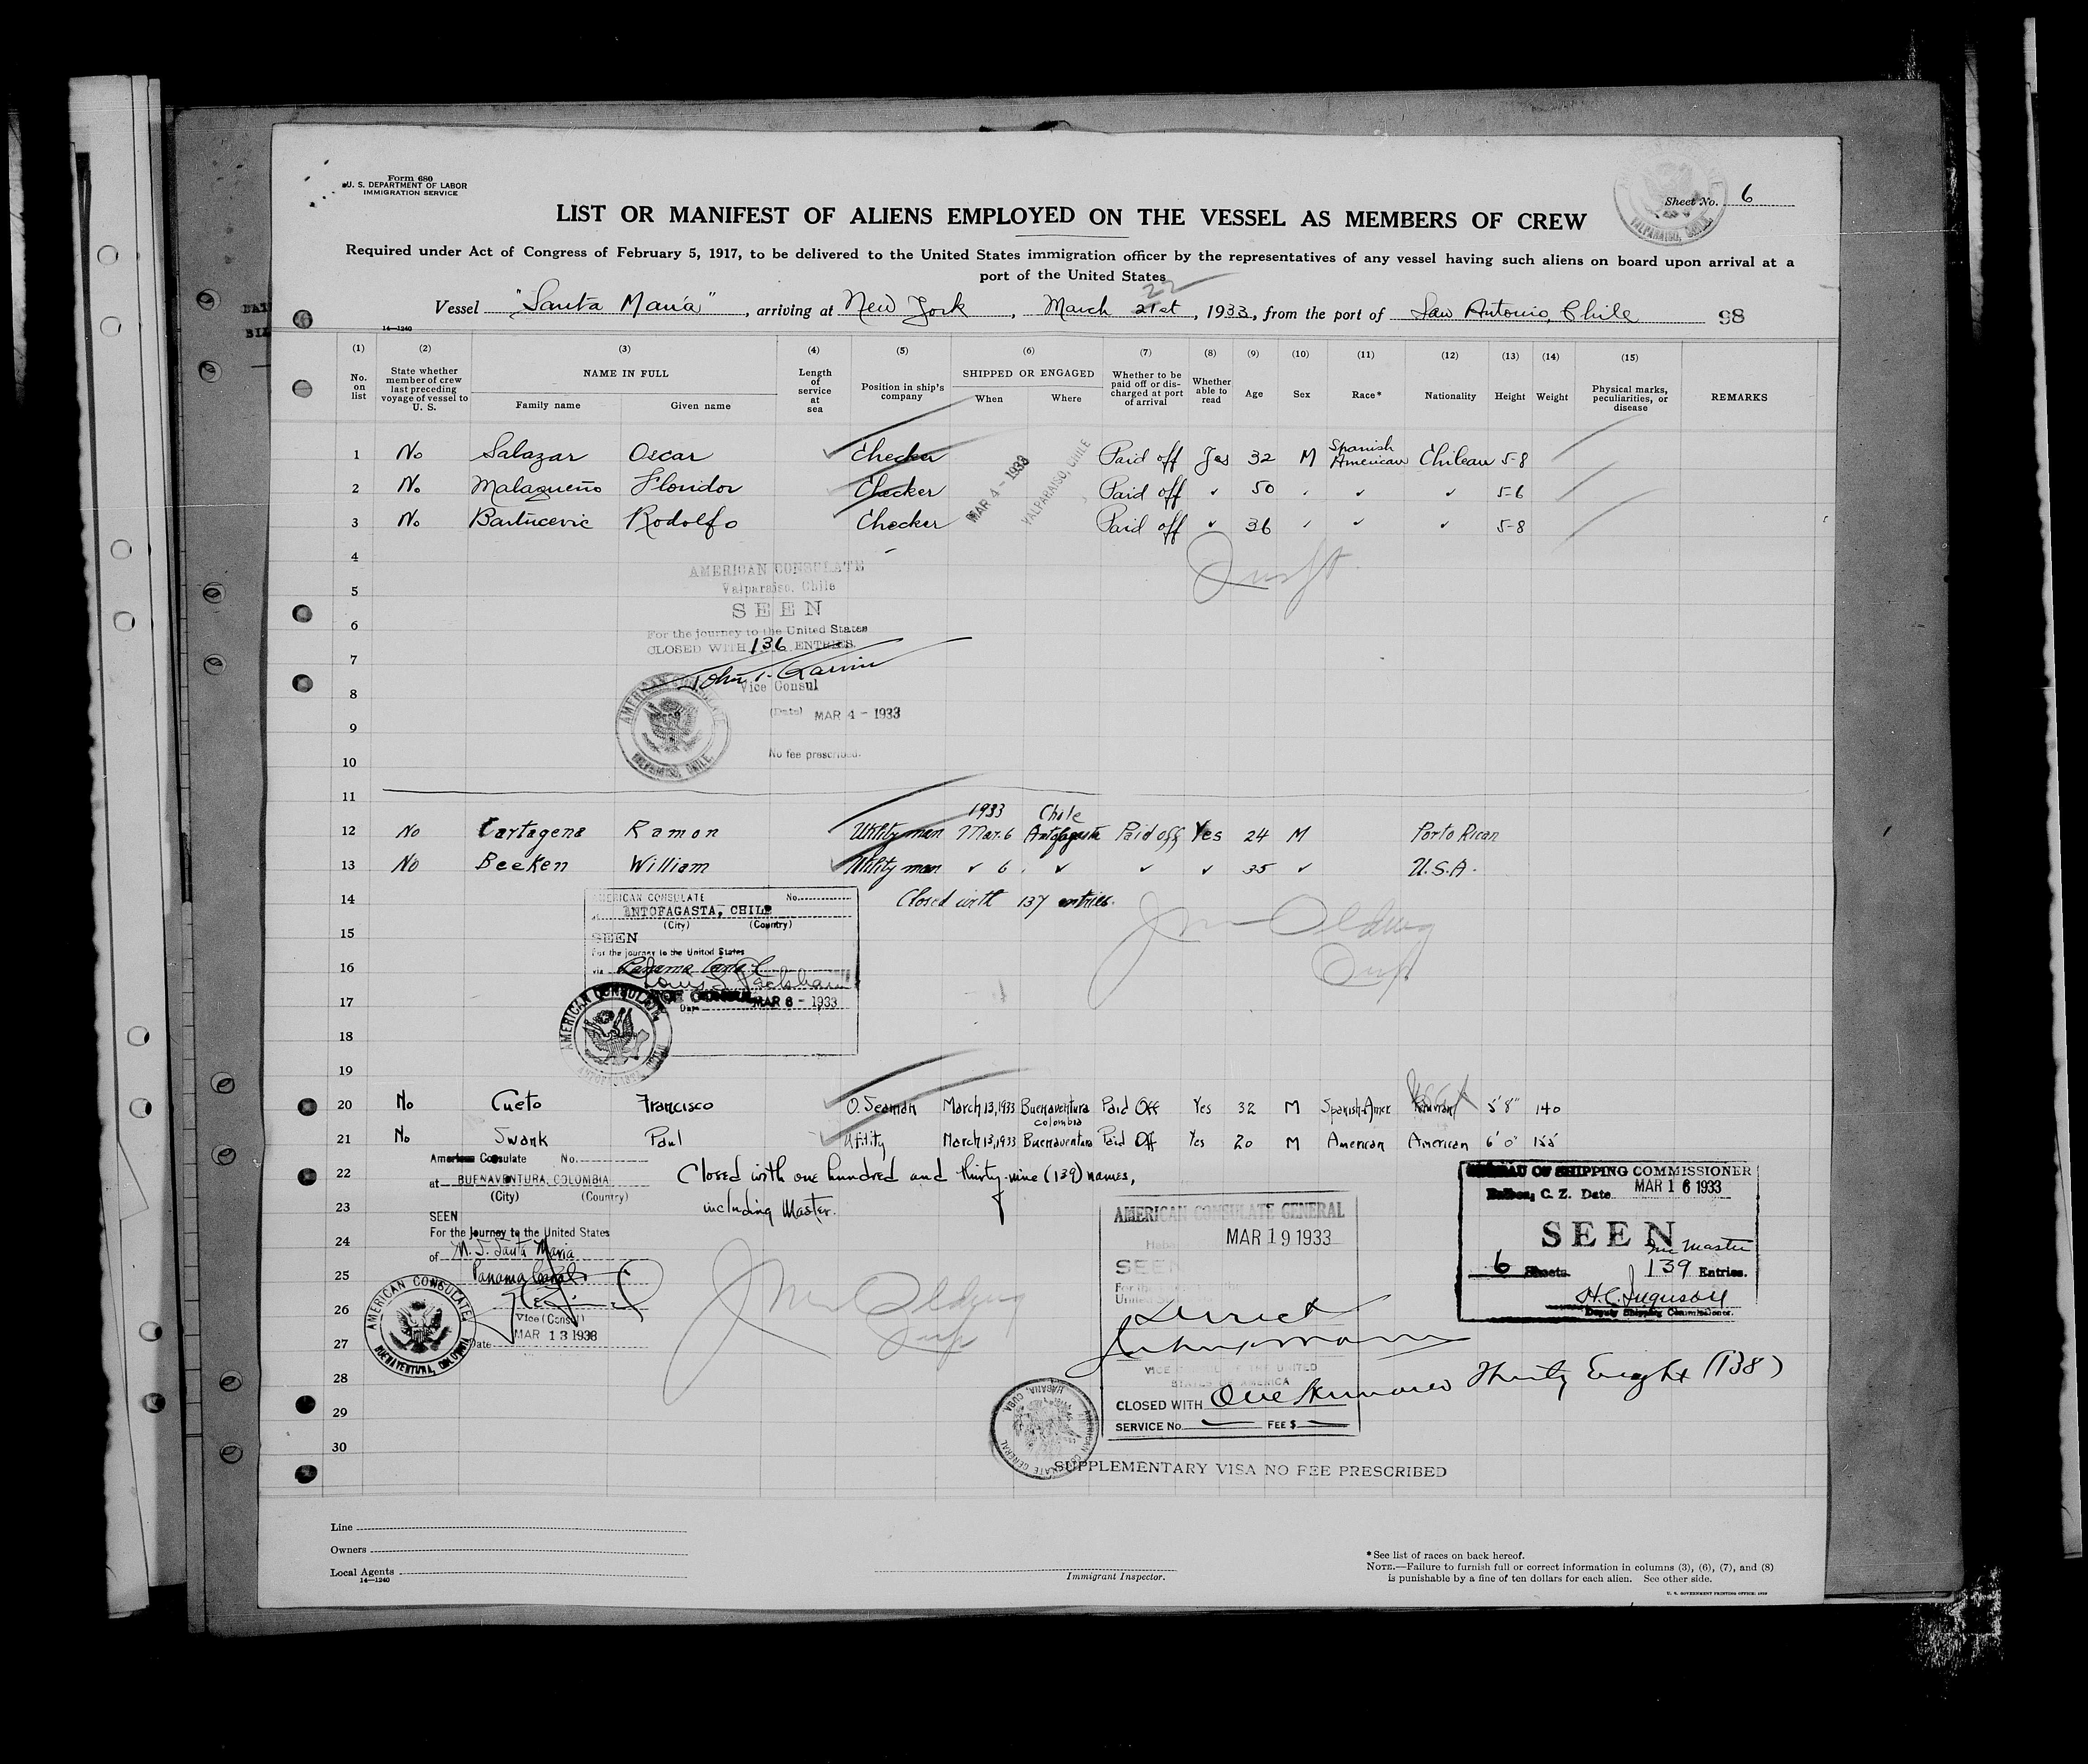 Form 680
U. S. DEPARTMENT OF LABOR
IMMIGRATION SERVICE
Sheet No. 6
VALPARAISO, CHILE
LIST OR MANIFEST OF ALIENS EMPLOYED ON THE VESSEL AS MEMBERS OF CREW
Required under Act of Congress of February 5, 1917, to be delivered to the United States immigration officer by the representatives of any vessel having such aliens on board upon arrival at a
port of the United States
22
Vessel "Santa Maria", arriving at New York, March 21st, 1933, from the port of San Antonio, Chile 98
14—1240
(1) (2) (3) (4) (5) (6) (7) (8) (9) (10) (11) (12) (13) (14) (15)
No. on list State whether member of crew last preceding voyage of vessel to U. S. NAME IN FULL Family name Given name Length of service at sea Position in ship's company SHIPPED OR ENGAGED When Where Whether to be paid off or discharged at port of arrival Whether able to read Age Sex Race* Nationality Height Weight Physical marks, peculiarities, or disease REMARKS
1 No Salazar Oscar Checker Paid off Yes 32 M Spanish American Chilean 5-8
2 No Malagueño Floridor Checker MAR 4 - 1933 VALPARAISO, CHILE Paid off ✓ 50 ✓ ✓ ✓ 5-6
3 No Bartucevic Rodolfo Checker Paid off ✓ 36 ✓ ✓ ✓ 5-8
4
AMERICAN CONSULATE
5 Valparaiso, Chile
SEEN
6 For the journey to the United States
CLOSED WITH 136 ENTRIES.
7
Vice Consul
8
(Date) MAR 4 - 1933
9
No fee prescribed.
AMERICAN CONSULATE
VALPARAISO, CHILE
10
11
1933 Chile
12 No Cartagena Ramon Utility man Mar. 6 Antofagasta Paid off Yes 24 M Porto Rican
13 No Beeken William Utility man ✓ 6 ✓ ✓ ✓ 35 ✓ U.S.A.
14 Closed with 137 entries.
AMERICAN CONSULATE No.
ANTOFAGASTA, CHILE
(City) (Country)
15 SEEN
For the journey to the United States
16 via Panama Canal
17 MAR 6 - 1933
Date
AMERICAN CONSULATE
18
19
20 No Cueto Francisco O. Seaman March 13, 1933 Buenaventura Colombia Paid Off Yes 32 M Spanish-Amer Peruvian 5' 8" 140
21 No Swank Paul Utility March 13, 1933 Buenaventura Paid Off Yes 20 M American American 6' 0" 155
American Consulate No.
22 at BUENAVENTURA, COLOMBIA
(City) (Country)
Closed with one hundred and thirty-nine (139) names,
23 including Master.
SEEN
For the Journey to the United States
24 of M. S. Santa Maria
25 Panama Canal
26
Vice Consul
27 Date MAR 13 1933
AMERICAN CONSULATE
BUENAVENTURA, COLOMBIA
BUREAU OF SHIPPING COMMISSIONER
Balboa, C. Z. Date MAR 16 1933
SEEN
Inc Master
6 Sheets 139 Entries.
H.C. Ferguson
Deputy Shipping Commissioner.
AMERICAN CONSULATE GENERAL
MAR 19 1933
SEEN
For the
United
Direct
VICE CONSUL OF THE UNITED
STATES OF AMERICA
28
CLOSED WITH One Hundred Thirty Eight (138)
29 SERVICE No. FEE $
AMERICAN CONSULATE GENERAL
HABANA, CUBA
30
SUPPLEMENTARY VISA NO FEE PRESCRIBED
Line
Owners
Local Agents
14—1240
Immigrant Inspector.
*See list of races on back hereof.
NOTE.—Failure to furnish full or correct information in columns (3), (6), (7), and (8)
is punishable by a fine of ten dollars for each alien. See other side.
U. S. GOVERNMENT PRINTING OFFICE: 1929